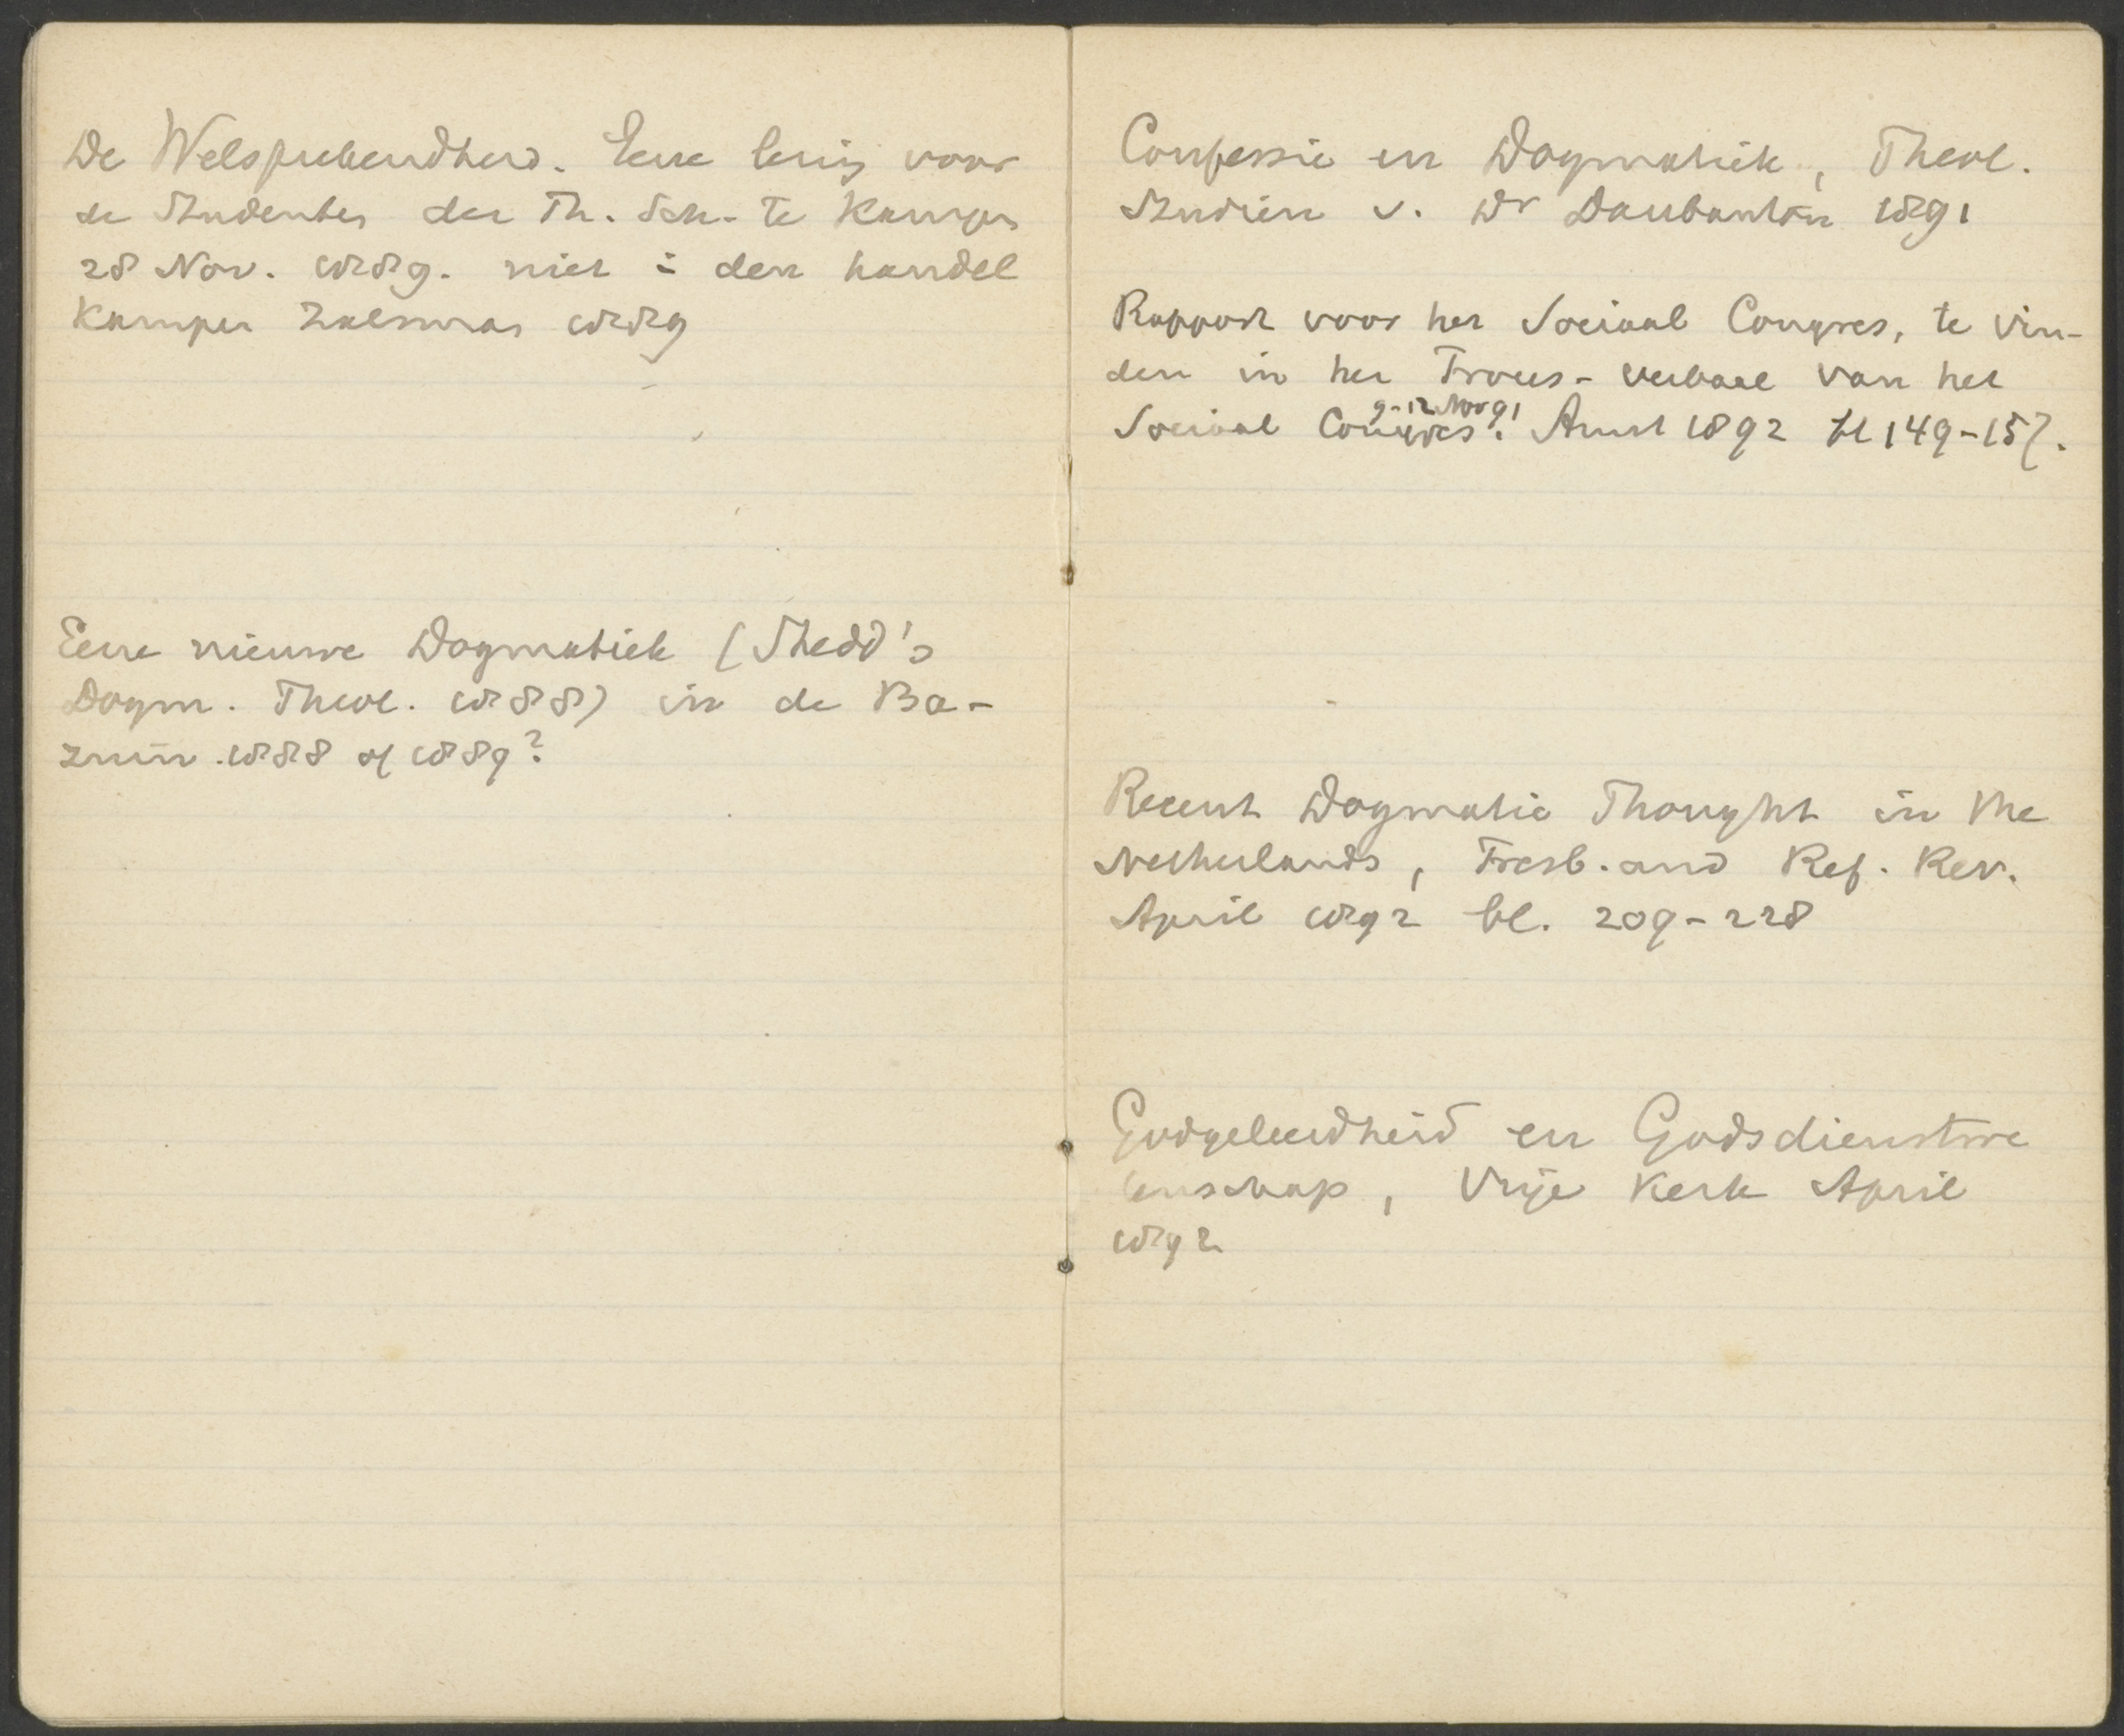 De Welsprekendheid. Eene lezing voor
de Studenten der Th. Sch. te Kampen
28 Nov. 1889. niet in den handel
Kampen Zalsman 1889
Eene nieuwe Dogmatiek (Shedd's
Dogm. Theol. 1888) in de Ba-
zuin 1888 of 1889?
Confessie en Dogmatiek, Theol.
Studien v. Dr Daubanton 1891
Rapport voor het Sociaal Congres, te vin-
den in het Proces-verbaal van het
9-12 Nov 91
Sociaal Congres. Amst 1892 bl 149-157.
Recent Dogmatic Thought in the
Netherlands, Presb. and Ref. Rev.
April 1892 bl. 209-228
Godgeleerdheid en Godsdienstwe
tenschap, Vrije Kerk April
1892